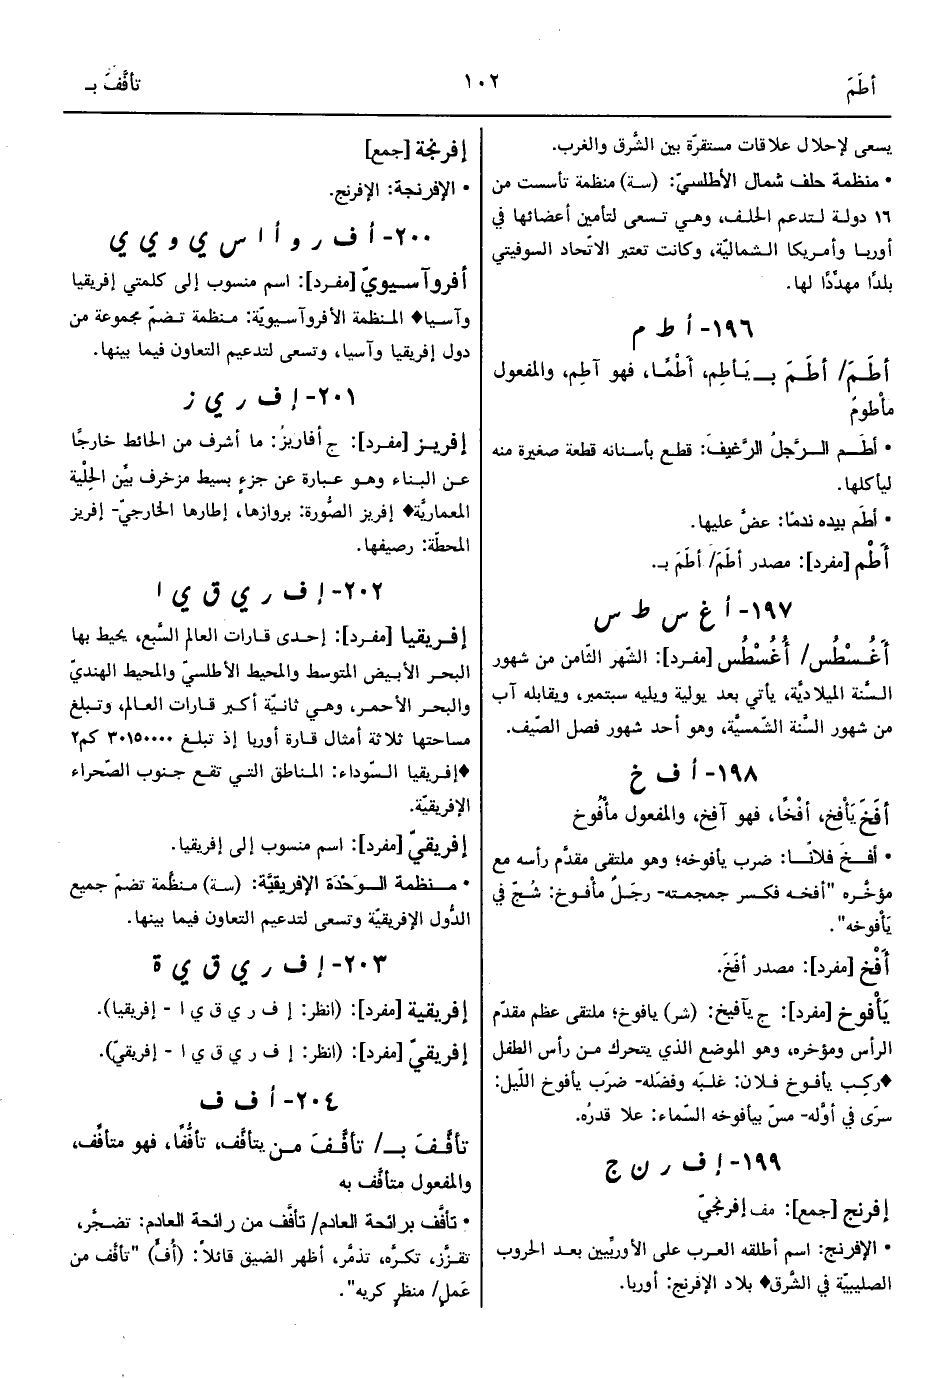 أطَمَ
١٠٢
تأفَّفَ بـ
يسعى لإحلال علاقات مستقرّة بين الشَّرق والغرب.
• منظمة حلف شمال الأطلسيّ: (سة) منظمة تأسست من
١٦ دولة لتدعم الحلف، وهي تسعى لتأمين أعضائها في
أوربا وأمريكا الشماليّة، وكانت تعتبر الاتّحاد السوفيتي
بلدًا مهدِّدًا لها.
١٩٦- أ ط م
أطَمَ/ أطَمَ بـ يَأطِم، أَطْمًا، فهو آطِم، والمفعول
مأْطومٌ
• أطَم الرَّجلُ الرَّغيفَ: قطع بأسنانه قطعة صغيرة منه
ليأكلها.
• أطَم بيده ندمًا: عضَّ عليها.
أَطْم [مفرد]: مصدر أطَمَ/ أطَمَ بـ.
١٩٧- أ غ س ط س
أَغُسْطُس/ أُغُسْطُس [مفرد]: الشّهر الثّامن من شهور
السَّنة الميلاديَّة، يأتي بعد يولية ويليه سبتمبر، ويقابله آب
من شهور السَّنة الشّمسيَّة، وهو أحد شهور فصل الصّيف.
١٩٨- أ ف خ
أفَخَ يَأْفِخ، أفْخًا، فهو آفِخ، والمفعول مأْفُوخ
• أفَخَ فلانًا: ضرب يأفوخه؛ وهو ملتقى مقدَّم رأسه مع
مؤخّره "أفخه فكسر جمجمته- رجَلٌ مأْفوخ: شُجّ في
يَأْفوخه".
أَفْخ [مفرد]: مصدر أفَخَ.
يَأْفوخ [مفرد]: ج يَآفيخ: (شر) يافوخ؛ ملتقى عظم مقدَّم
الرأس ومؤخره، وهو الموضع الذي يتحرك من رأس الطفل
♦ركِب يأفوخ فلان: غلبَه وفضَله- ضرَب يأفوخ اللّيل:
سرَى في أوَّله- مسّ بيأفوخه السَّماء: علا قدرُه.
١٩٩- إ ف ر ن ج
إفرنج [جمع]: مف إفرنجيّ
• الإفرنج: اسم أطلقه العرب على الأوربِّيين بعد الحروب
الصليبيّة في الشَّرق♦ بلاد الإفرنج: أوربا.
إفرنجة [جمع]
• الإفرنجة: الإفرنج.
٢٠٠- أ ف ر و أ ا س ي و ي ي
أفروآسيويّ [مفرد]: اسم منسوب إلى كلمتي إفريقيا
وآسيا♦ المنظمة الأفروآسيويّة: منظمة تضمّ مجموعة من
دول إفريقيا وآسيا، وتسعى لتدعيم التعاون فيما بينها.
٢٠١- إ ف ر ي ز
إفريز [مفرد]: ج أفاريزُ: ما أشرف من الحائط خارجًا
عن البناء وهو عبارة عن جزءٍ بسيط مزخرف بيَّن الحِلْية
المعماريَّة♦ إفريز الصُّورة: بروازها، إطارها الخارجيّ- إفريز
المحطّة: رصيفها.
٢٠٢- إ ف ر ي ق ي ا
إفريقيا [مفرد]: إحدى قارات العالم السَّبع، يحيط بها
البحر الأبيض المتوسط والمحيط الأطلسيّ والمحيط الهنديّ
والبحر الأحمر، وهي ثانيّة أكبر قارات العالم، وتبلغ
مساحتها ثلاثة أمثال قارة أوربا إذ تبلغ ٣٠١٥٠٠٠٠ كم٢
♦إفريقيا السّوداء: المناطق التي تقع جنوب الصّحراء
الإفريقيّة.
إفريقيّ [مفرد]: اسم منسوب إلى إفريقيا.
• منظمة الوَحْدَة الإفريقيَّة: (سة) منظَّمة تضمّ جميع
الدُّول الإفريقيّة وتسعى لتدعيم التعاون فيما بينها.
٢٠٣- إ ف ر ي ق ي ة
إفريقية [مفرد]: (انظر: إ ف ر ي ق ي ا - إفريقيا).
إفريقيّ [مفرد]: (انظر: إ ف ر ي ق ي ا - إفريقيّ).
٢٠٤- أ ف ف
تأفَّفَ بـ/ تأفَّفَ من يتأفَّف، تأفُّفًا، فهو متأفِّف،
والمفعول متأفَّف به
• تأفَّف برائحة العادم/ تأفَّف من رائحة العادم: تضجَّر،
تقزَّز، تكرَّه، تذمَّر، أظهر الضيق قائلاً: (أُفّ) "تأفَّف من
عَملٍ/ منظرٍ كريه".